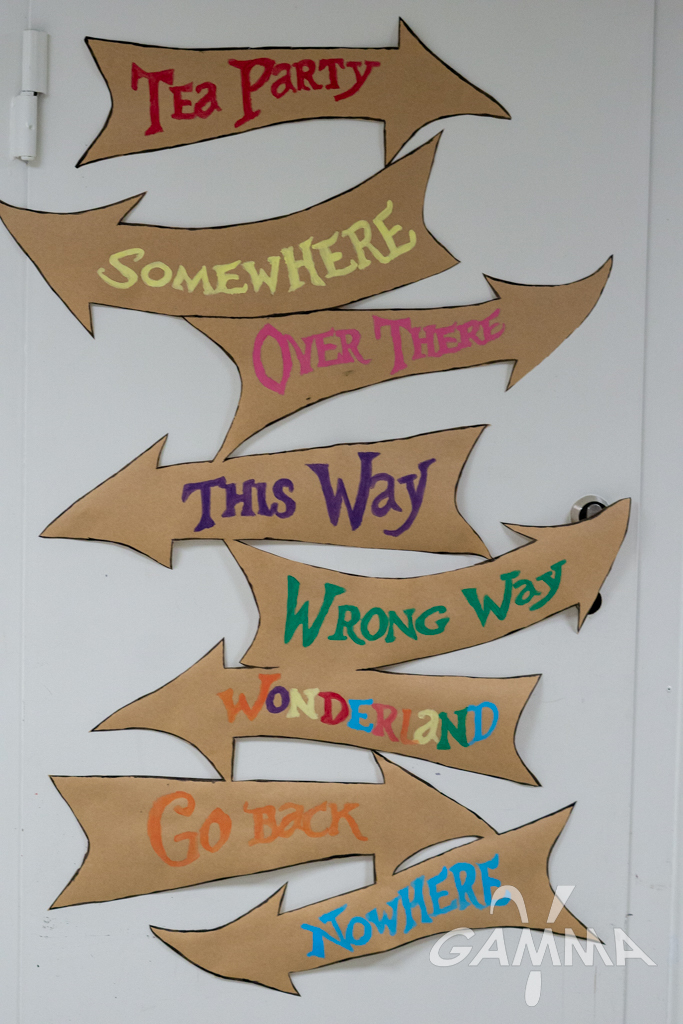 Tea Party
Somewhere
Over There
This Way
Wrong Way
Wonderland
Go Back
Nowhere
GAMMA